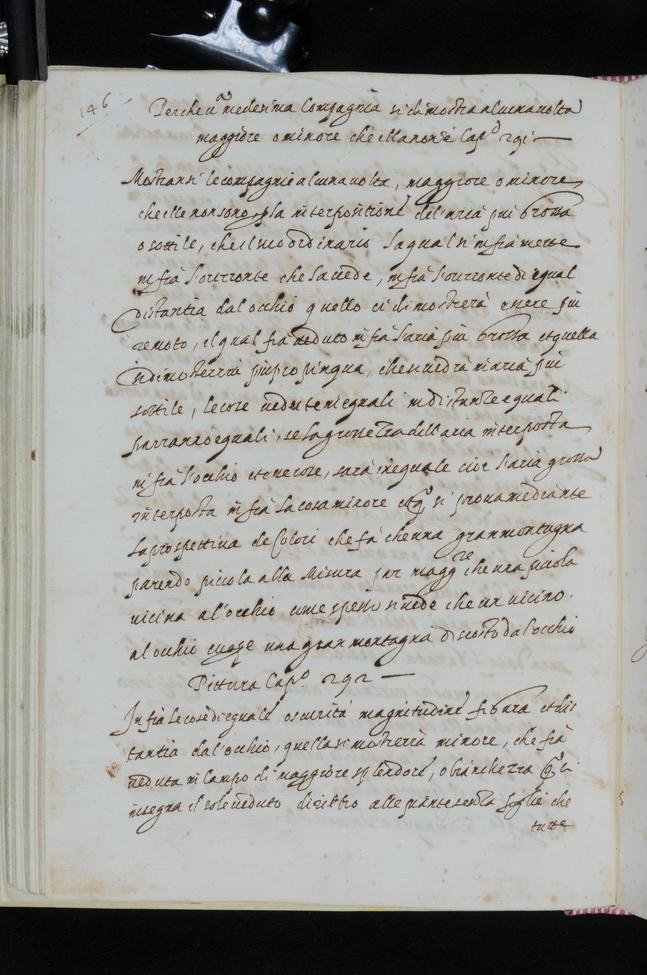 146
Perche una medesima Campagna si dimostra alcuna volta
maggiore o minore che ella non è Cap.º 291
Mostransi le compagnie alcuna volta, maggiore o minore
che elle non sono, p la interpositione del aria piu grossa
o sottile, che il suo ordinario la qual si infra mette
infra l'orizonte che la vede, infra l'orizonte di equal
distantia dal occhio quello ci dimostrerà essere piu
remoto, il qual fia veduto infra l'aria piu grossa et quella
si dimosterrà piu propinqua, che si vedrà in aria piu
sottile, le cose vedute inequali in distantie equali
parranno equali, se la grossezza dell'aria interposta
in fra l'occhio et esse cose, sarà inequale cioe l'aria grossa
interposta infra la cosa minore et qº si prova mediante
la prospettiva de Colori che fà che una gran montagna
parendo piccola alla Misura par magg.re che una piccola
vicina al'occhio come spesso si vede che un vicino
al occhio cuopre una gran montagna discosto da l'occhio
Pittura Cap.º 292
In fra le cose di equale oscurità magnitudine figura et dis
tantia dal'occhio, quella si mosterrà minore, che fia
veduta in campo di maggiore splendore, o bianchezza
insegna il sole veduto dirietro alle piante senza foglie che
tutte